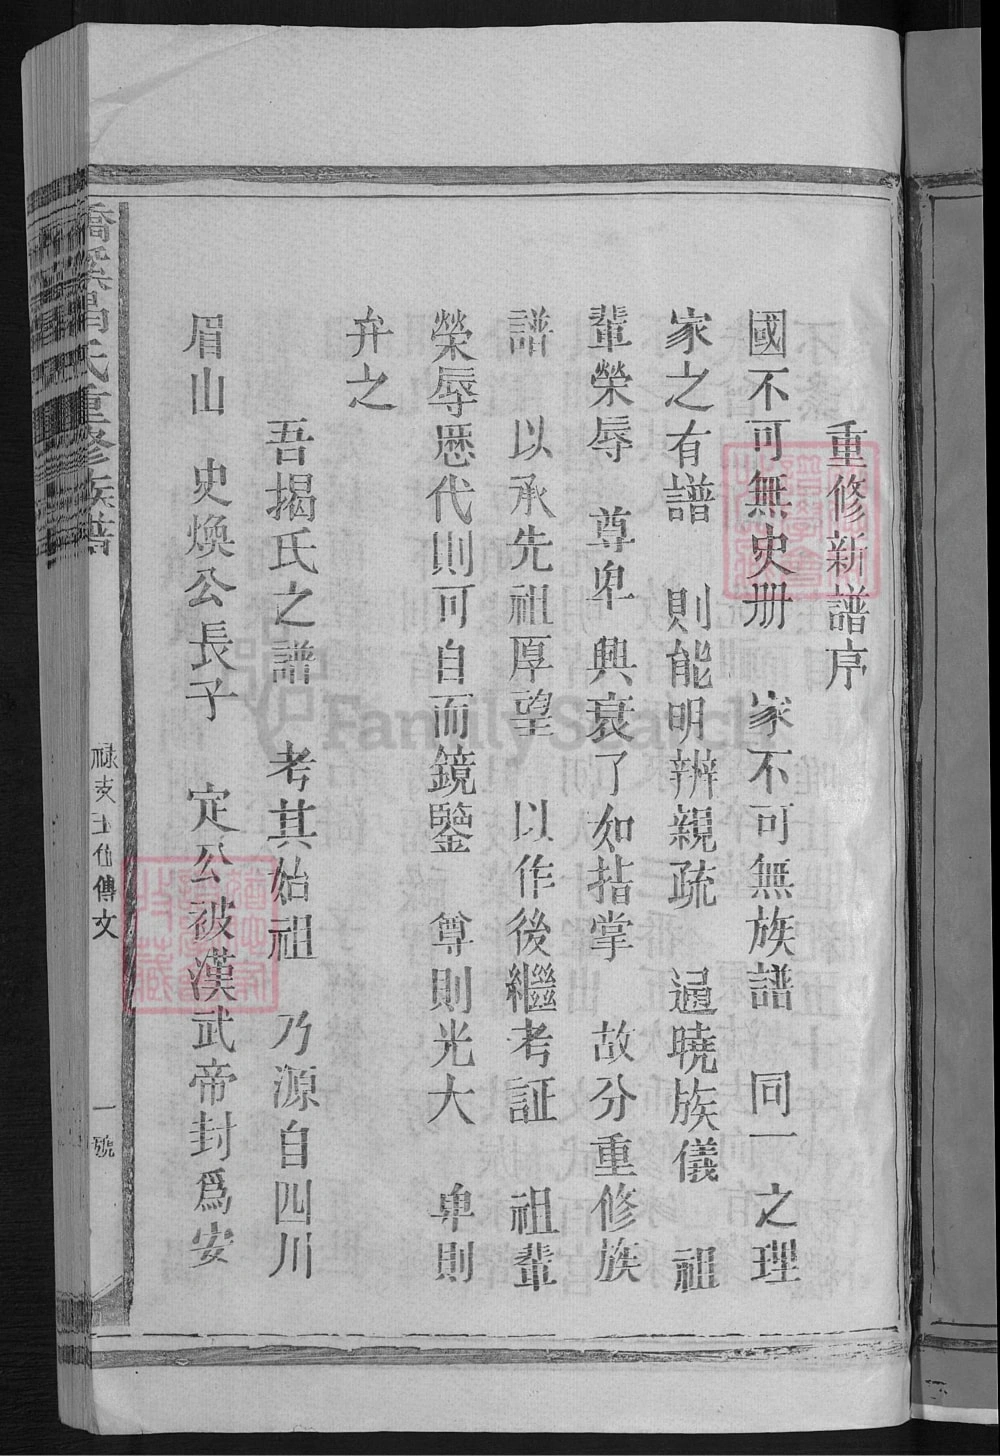 重修新譜序
國不可無史册 家不可無族譜 同一之理
家之有譜 則能明辨親疏 通曉族儀 祖
輩榮辱 尊卑 興衰了如指掌 故分重修族
譜 以承先祖厚望 以作後繼考証 祖輩
榮辱歷代則可自而鏡鑒 尊則光大 卑則
弁之
吾揭氏之譜 考其始祖 乃源自四川
眉山 史煥公長子 定公被漢武帝封爲安
氏重修族譜
祿支玉仕傳文
一號
FamilySearch